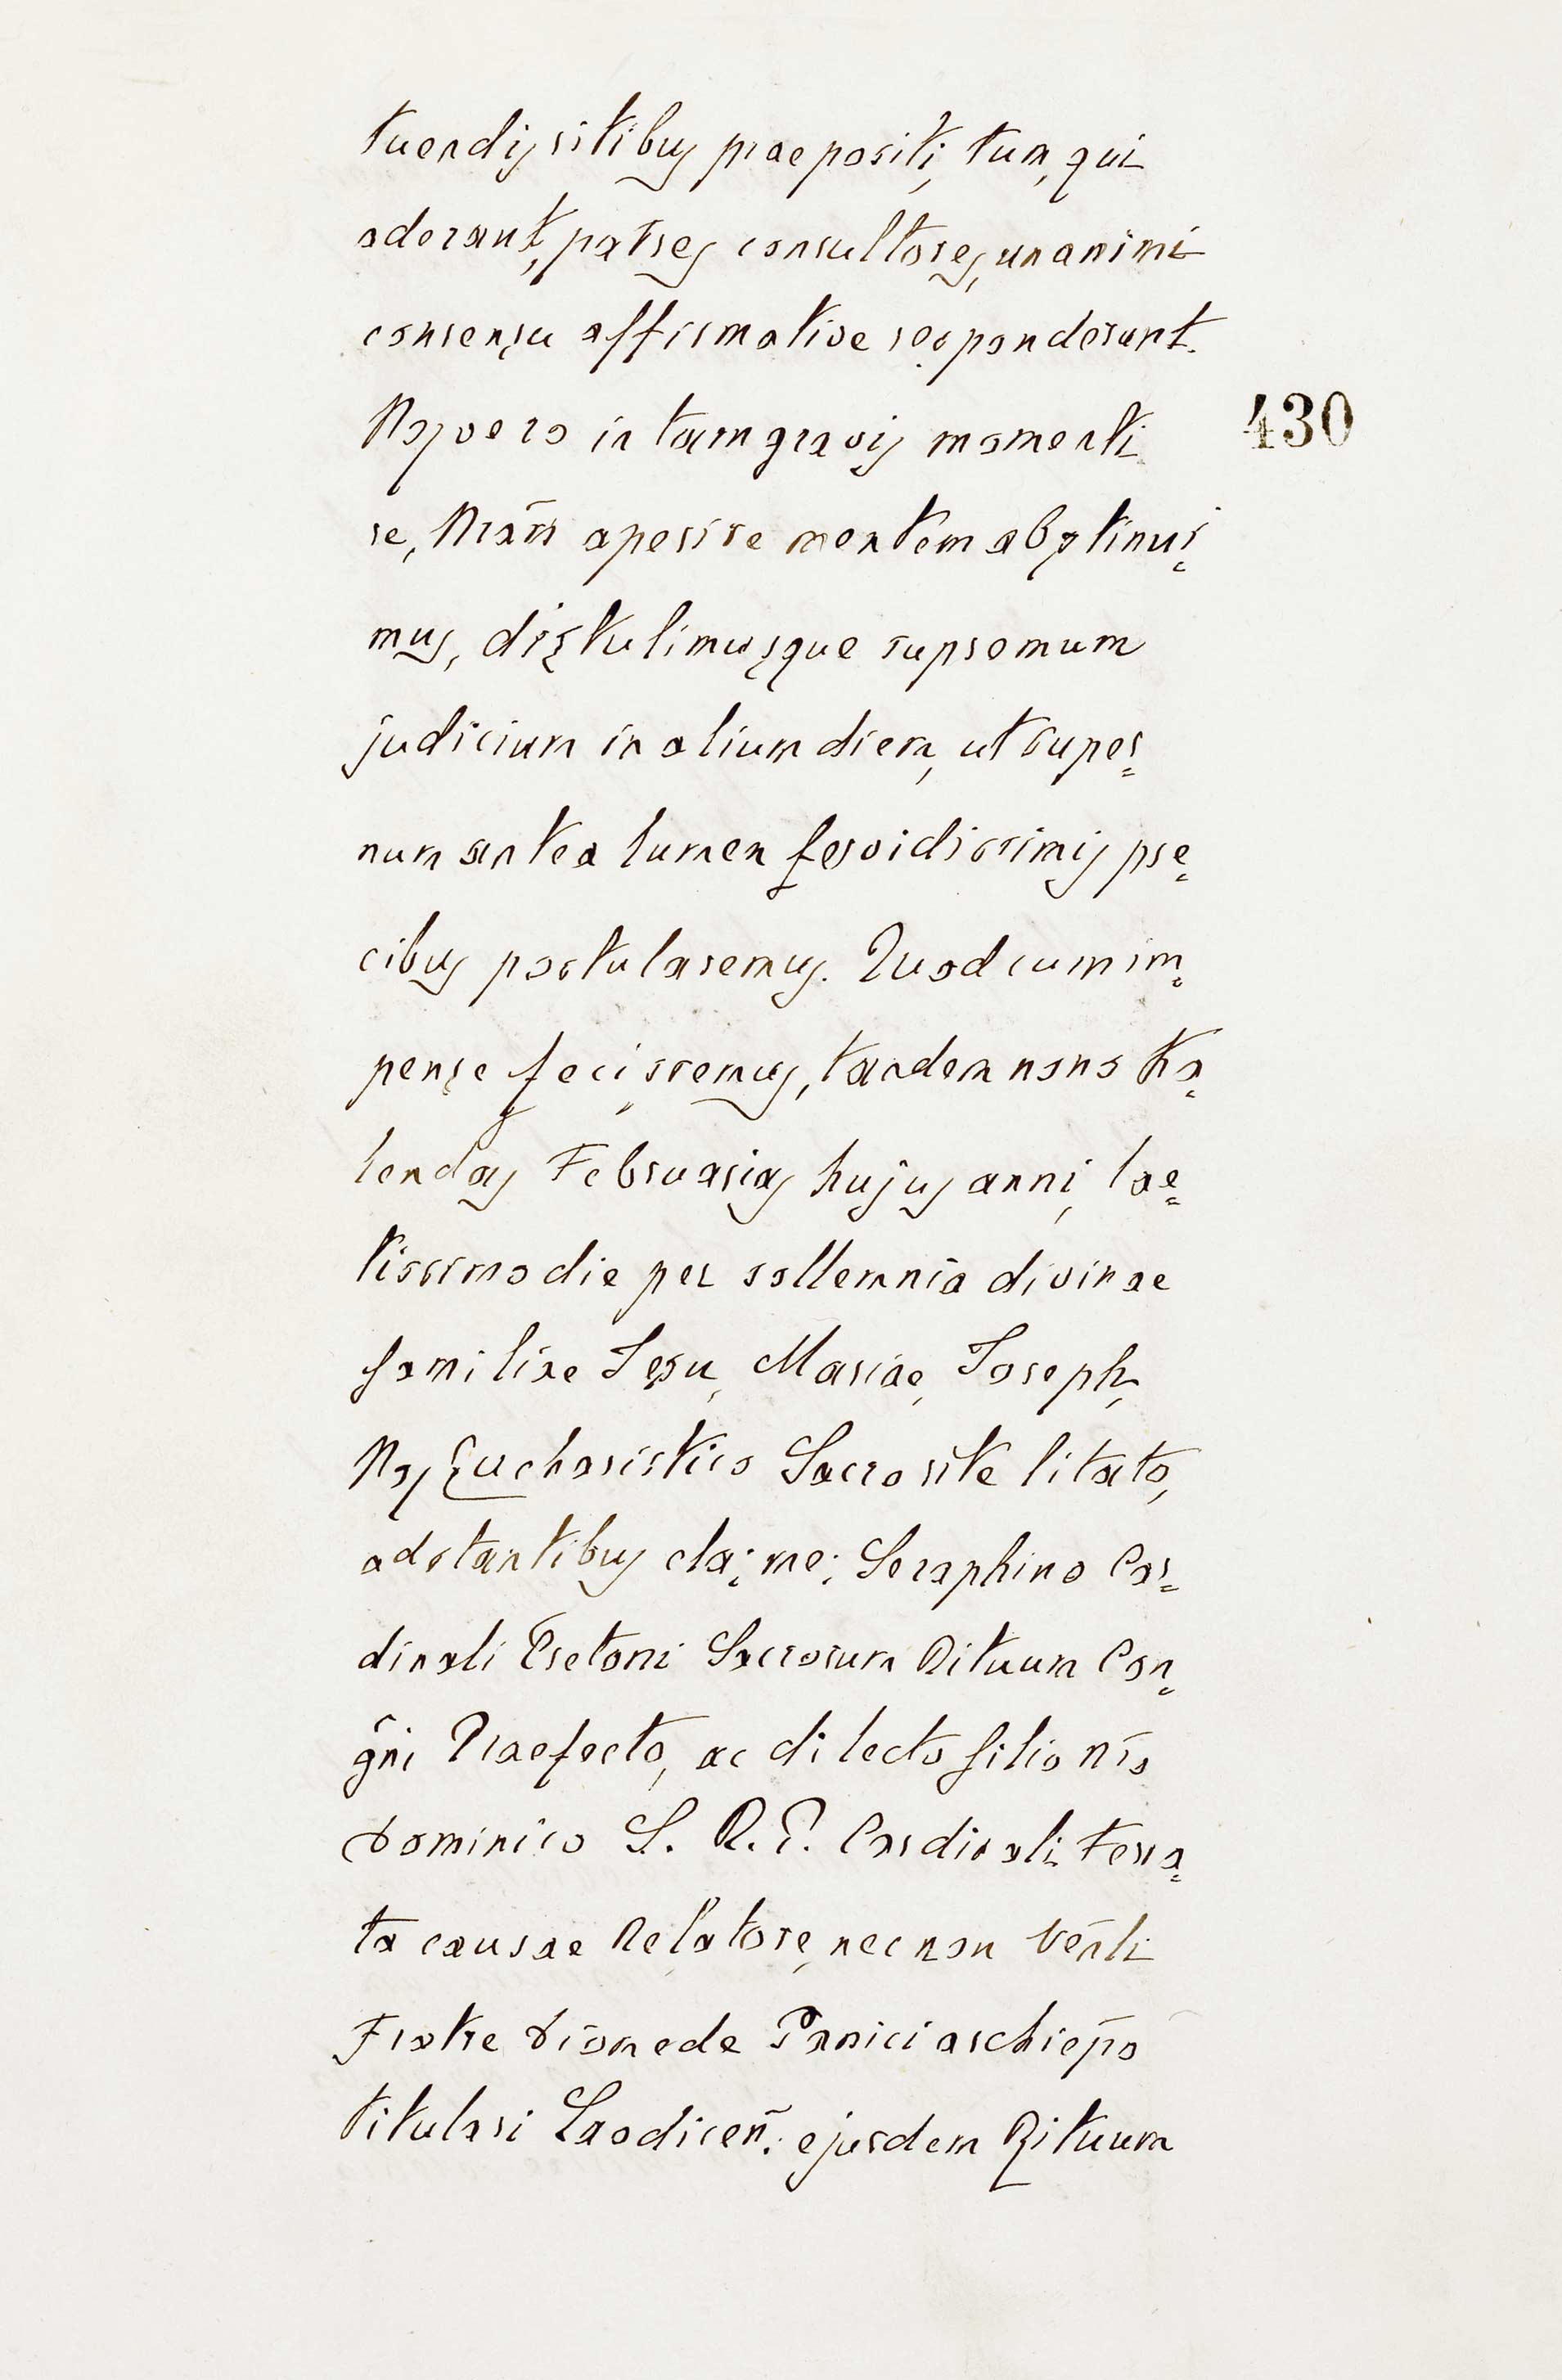 tuendis ritibus praepositi, tum, qui
aderant, patres consultores, unanimi
consensu affirmative responderunt.
Nos vero in tam gravis momenti
430
re, Nrãm aperire mentem abstinui=
mus, distulimusque supremum
judicium in alium diem, ut super=
num antea lumen fervidissimis pre=
cibus postularemus. Quod cum im=
pense fecissemus, tandem nono Ka=
lendas Februarias hujus anni, lae=
tissimo die per sollemnia divinae
familiae Iesu, Mariae, Ioseph,
Nos Eucharistico Sacro rite litato,
adstantibus clae: me: Seraphino Car=
dinali Cretoni Sacrorum Rituum Con=
gñi Praefecto, ac dilecto filio nr̃o
Dominico S. R. E. Cardinali Ferra=
ta causae Relatore, nec non Vẽnli
Fratre Diomede Panici archiepõ
titulari Laodiceñ. ejusdem Rituum